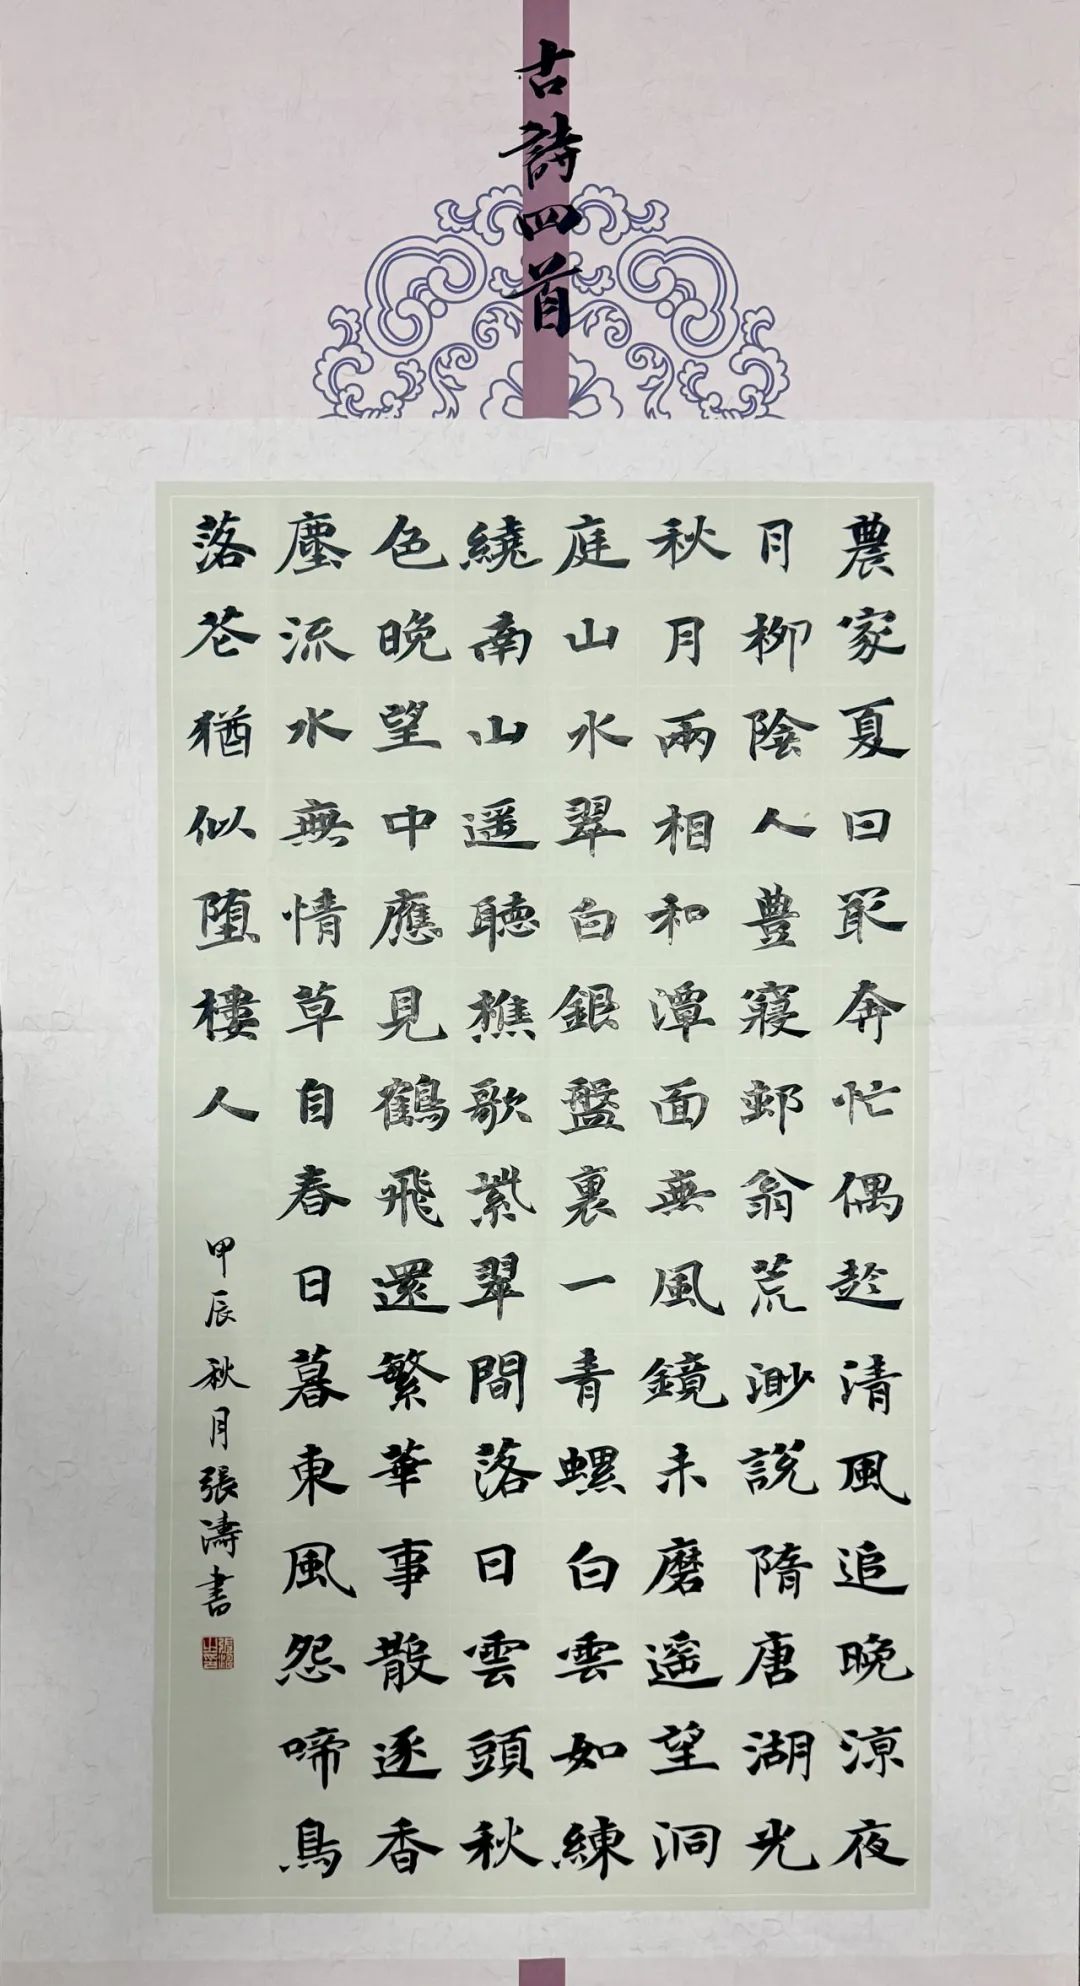 古詩四首
農家夏日最奔忙偶趁清風追晚涼夜
月柳陰人豊寢邨翁荒渺説隋唐湖光
秋月兩相和潭面無風鏡未磨遥望洞
庭山水翠白銀盤裏一青螺白雲如練
繞南山遥聽樵歌紫翠間落日雲頭秋
色晚望中應見鶴飛還繁華事散逐香
塵流水無情草自春日暮東風怨啼鳥
落花猶似墮樓人
甲辰秋月張濤書